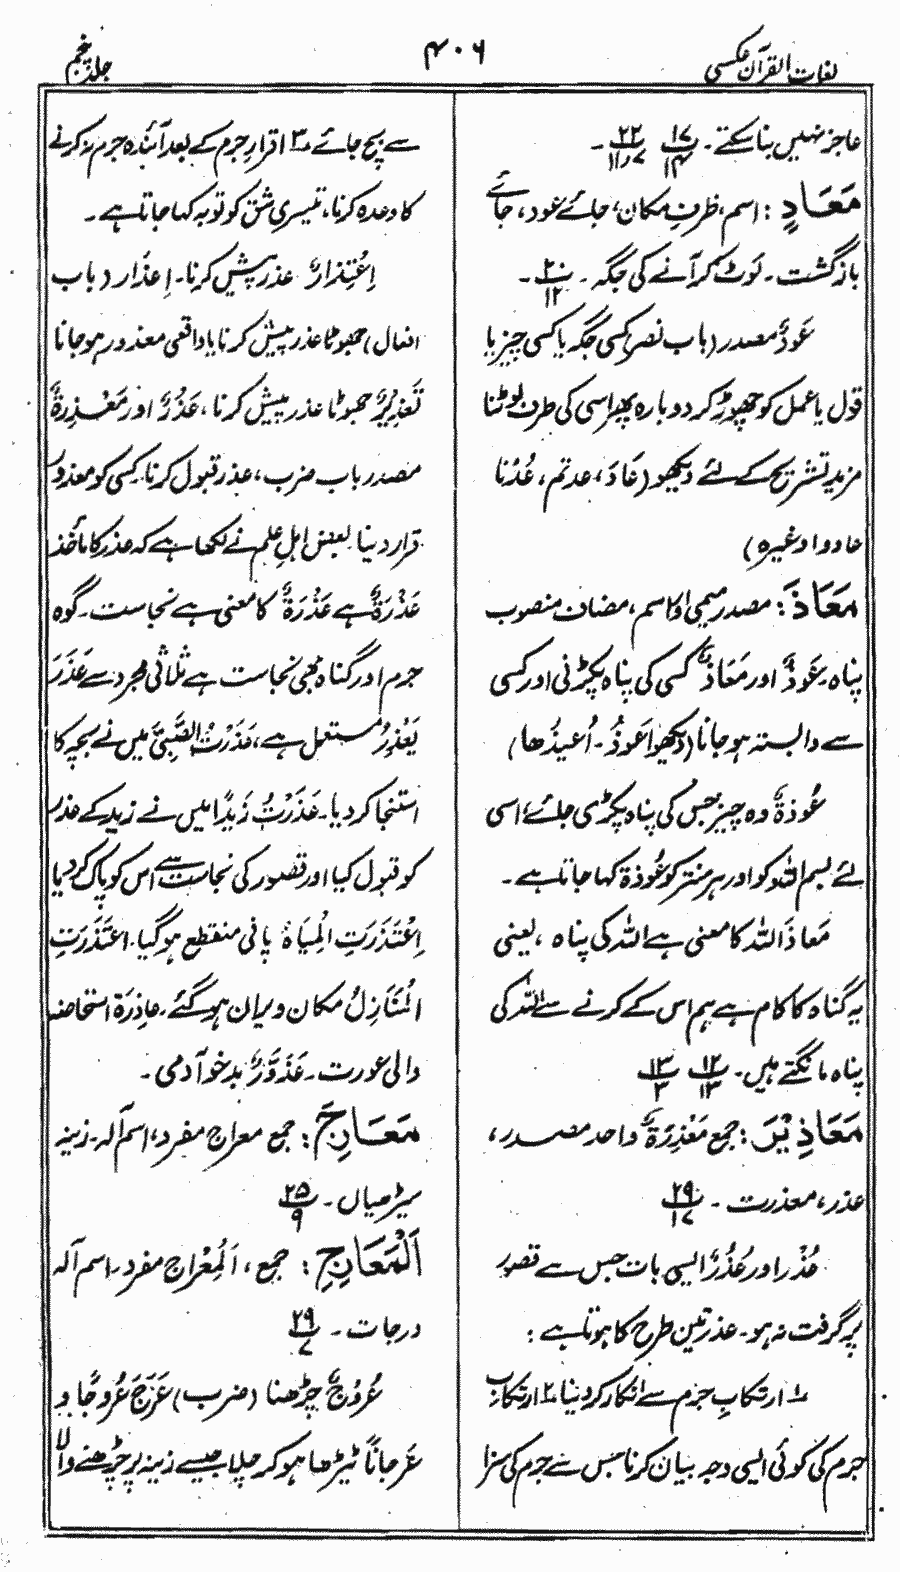 لغات القرآن عکسی
۴۰۶
جلد پنجم
عاجز نہیں بنا سکتے۔ ۱۷/۱۴ ۲۲/۱۱،۷ ۔
مَعَادٍ: اسم، ظرفِ مکان، جائے عود، جائے
بازگشت۔ لَوٹ کر آنے کی جگہ۔ ۲۰/۱۲ ۔
عَودٌ مصدر (باب نصر) کسی جگہ یا کسی چیز یا
قول یا عمل کو چھوڑ کر دوبارہ پھر اسی کی طرف لوٹنا
مزید تشریح کے لئے دیکھو (عَادَ، عدتم، عُدْنَا
عادوا وغیرہ)
مَعَاذَ: مصدر میمی اور اسم، مضاف منصوب
پناہ۔ عَوذٌ اور مَعَاذٌ کسی کی پناہ پکڑنی اور کسی
سے وابستہ ہو جانا (دیکھو اَعوذُ۔ اُعیذُھا)
عُوذۃٌ وہ چیز جس کی پناہ پکڑی جائے، اسی
لئے بسم اللہ کو اور ہر منتر کو عُوذۃ کہا جاتا ہے۔
مَعَاذَ اللہ کا معنی ہے اللہ کی پناہ، یعنی
یہ گناہ کا کام ہے ہم اس کے کرنے سے اللہ کی
پناہ مانگتے ہیں۔ ۱۲/۱۳ ۱۳/۳
مَعَاذِیْرَ: جمع مَعْذِرَۃٌ واحد مصدر،
عذر، معذرت۔ ۲۹/۱۷
عُذْر اور عُذُرٌ ایسی بات جس سے قصور
پر گرفت نہ ہو۔ عذر تین طرح کا ہوتا ہے:
۱ ارتکابِ جرم سے انکار کر دینا ۲ ارتکابِ
جرم کی کوئی ایسی وجہ بیان کرنا جس سے جرم کی سزا
سے بچ جائے ۳ اقرارِ جرم کے بعد آئندہ جرم نہ کرنے
کا وعدہ کرنا، تیسری شق کو توبہ کہا جاتا ہے۔
اِعْتِذَارٌ عذر پیش کرنا۔ اِعذَار (باب
افعال) جھوٹا عذر پیش کرنا یا واقعی معذور ہو جانا
تَعذِیْرٌ جھوٹا عذر پیش کرنا، عَذْرٌ اور مَعْذِرَۃٌ
مصدر باب ضرب، عذر قبول کرنا۔ کسی کو معذور
قرار دینا بعض اہلِ علم نے لکھا ہے کہ عذر کا ماخذ
عَذْرَۃٌ ہے عَذْرَۃٌ کا معنی ہے نجاست۔ گوہ
جرم اور گناہ بھی نجاست ہے ثلاثی مجرد سے عَذَرَ
یَعْذِرُ مستعمل ہے، عَذَرْتُ الصَّبِیَّ میں نے بچہ کا
استنجا کر دیا۔ عَذَرْتُ زَیدًا میں نے زید کے عذر
کو قبول کیا اور قصور کی نجاست سے اس کو پاک کر دیا
اِعْتَذَرَتِ الْمِیَاہُ پانی منقطع ہو گیا۔ اعتَذَرَتِ
الْمَنَازِلُ مکان ویران ہو گئے۔ عاذِرَۃ استحاضہ
والی عورت۔ عَذَوَّرٌ بدخو آدمی۔
مَعَارِجَ: جمع معراج مفرد، اسم آلہ۔ زینہ
سیڑھیاں۔ ۲۵/۹
اَلْمَعَارِجِ: جمع، اَلْمِعْرَاج مفرد۔ اسم آلہ
درجات۔ ۲۹/۷
عُرُوْجٌ چڑھنا (ضرب) عَرَجَ عُرُوجًا و
عَرجانًا ٹیڑھا ہو کر چلا جیسے زینہ پر چڑھنے والا